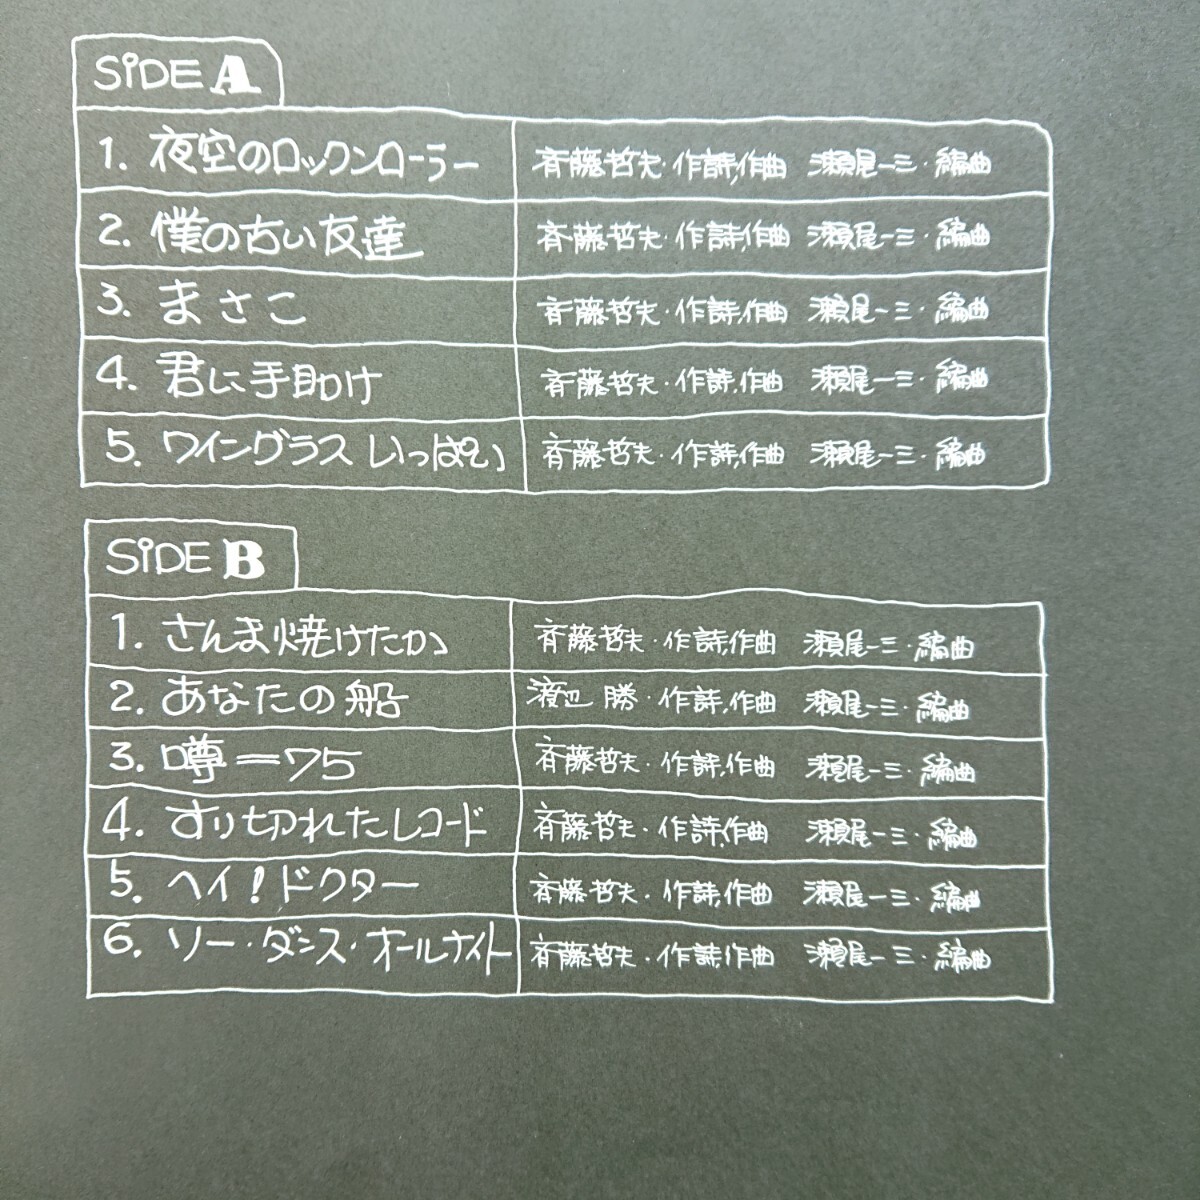 SiDE A
1. 夜空のロックンローラー 斉藤哲夫・作詩,作曲 瀬尾一三・編曲
2. 僕の古い友達 斉藤哲夫・作詩,作曲 瀬尾一三・編曲
3. まさこ 斉藤哲夫・作詩,作曲 瀬尾一三・編曲
4. 君に手助け 斉藤哲夫・作詩,作曲 瀬尾一三・編曲
5. ワイングラスいっぱい 斉藤哲夫・作詩,作曲 瀬尾一三・編曲
SiDE B
1. さんま焼けたか 斉藤哲夫・作詩,作曲 瀬尾一三・編曲
2. あなたの船 渡辺 勝・作詩,作曲 瀬尾一三・編曲
3. 噂=75 斉藤哲夫・作詩,作曲 瀬尾一三・編曲
4. すり切れたレコード 斉藤哲夫・作詩,作曲 瀬尾一三・編曲
5. ヘイ!ドクター 斉藤哲夫・作詩,作曲 瀬尾一三・編曲
6. ソー・ダンス・オールナイト 斉藤哲夫・作詩,作曲 瀬尾一三・編曲